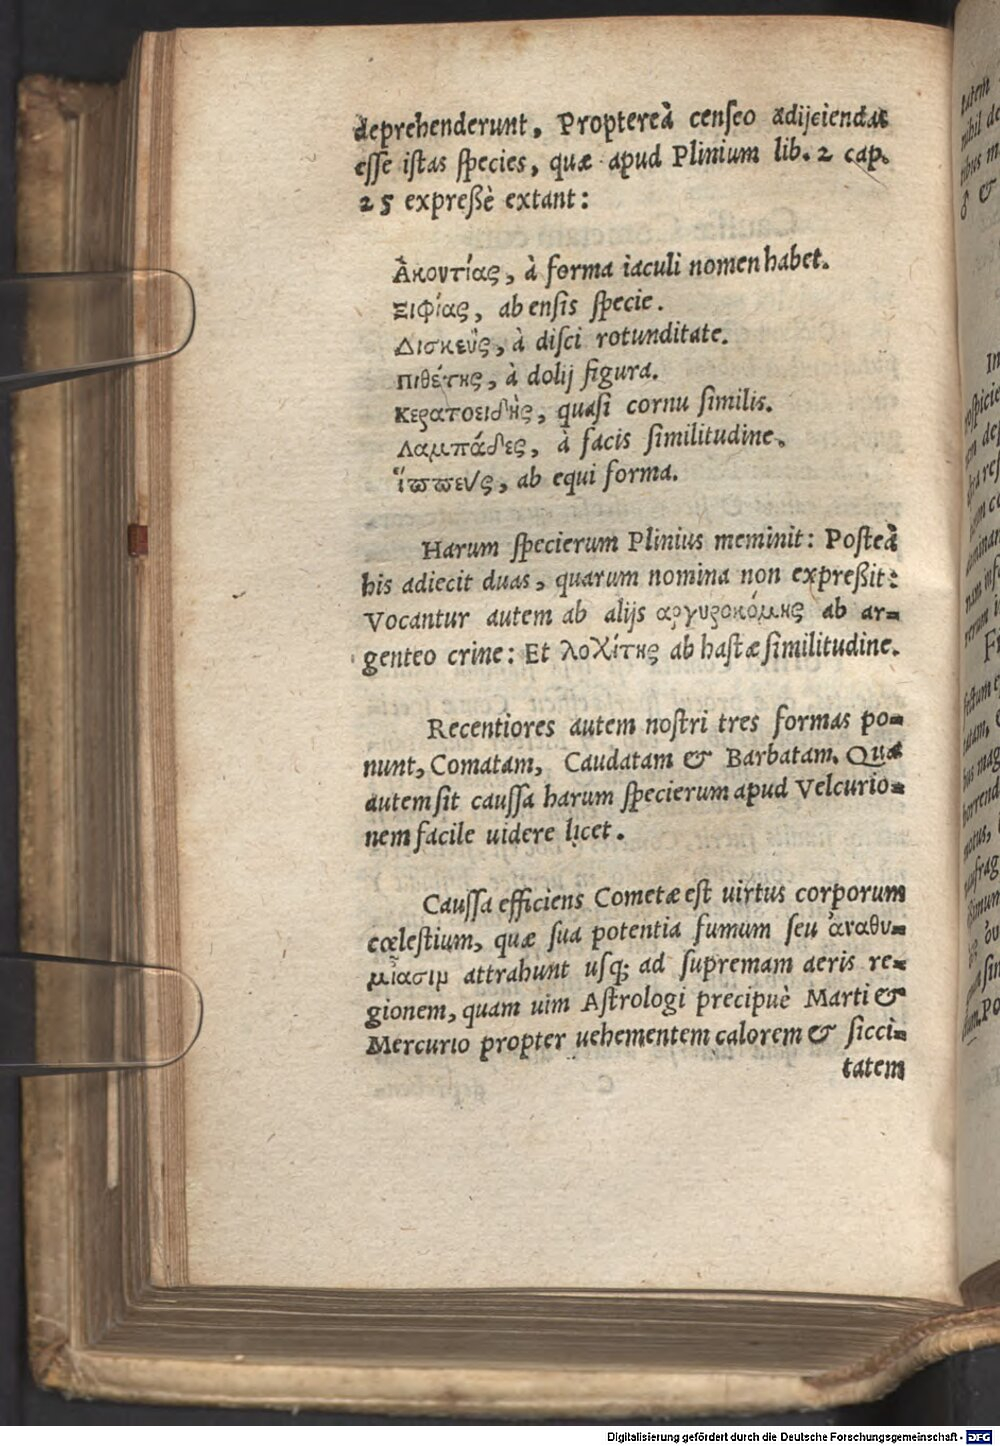 deprehenderunt. Proptereà censeo adijciendas
esse istas species, quæ apud Plinium lib. 2 cap.
25 expreßè extant:
Ἀκοντίας, à forma iaculi nomen habet.
Ξιφίας, ab ensis specie.
Δισκεὺς, à disci rotunditate.
πιθέτης, à dolij figura.
κερατοειδὴς, quasi cornu similis.
Λαμπάδες, à facis similitudine.
ἵππευς, ab equi forma.
Harum specierum Plinius meminit: Posteà
his adiecit duas, quarum nomina non expreßit:
Vocantur autem ab alijs αργυροκόμης ab ar=
genteo crine: Et λοχίτης ab hastæ similitudine.
Recentiores autem nostri tres formas po=
nunt, Comatam, Caudatam & Barbatam. Quæ
autem sit caussa harum specierum apud Velcurio=
nem facile uidere licet.
Caussa efficiens Cometæ est uirtus corporum
cœlestium, quæ sua potentia fumum seu ἀναθυ=
μίασιμ attrahunt usq; ad supremam aeris re=
gionem, quam uim Astrologi precipuè Marti &
Mercurio propter uehementem calorem & sicci=
tatem
tatem
nihil de
tibus m
♂ &
In
Digitalisierung gefördert durch die Deutsche Forschungsgemeinschaft - DFG